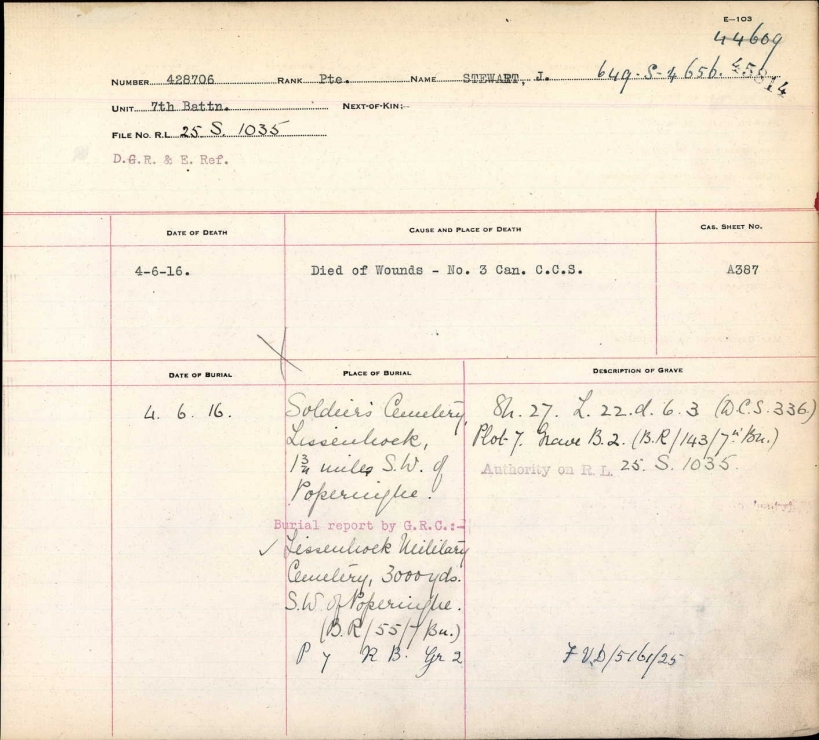 E—103
44609
649-S-4656.
NUMBER 428706 RANK Pte. NAME STEWART, J.
UNIT 7th Battn. NEXT-OF-KIN:-
FILE NO. R.L. 25. S. 1035
D.G.R. & E. Ref.
DATE OF DEATH CAUSE AND PLACE OF DEATH CAS. SHEET NO.
4-6-16. Died of Wounds - No. 3 Can. C.C.S. A387
DATE OF BURIAL PLACE OF BURIAL DESCRIPTION OF GRAVE
4. 6. 16. Soldiers Cemetery, Sh. 27. L. 22.d. 6.3 (D.C.S. 336.)
Lissenhoek, Plot 7. Grave B.2. (B.R/143/7th Bn.)
1¾ miles S.W. of Authority on R.L. 25. S. 1035.
Poperinghe.
Burial report by G.R.C.:-
✓ Lissenhoek Military
Cemetery, 3000 yds.
S.W. of Poperinghe.
(B.R/55/7 Bn.)
P 7 R B. Gr 2